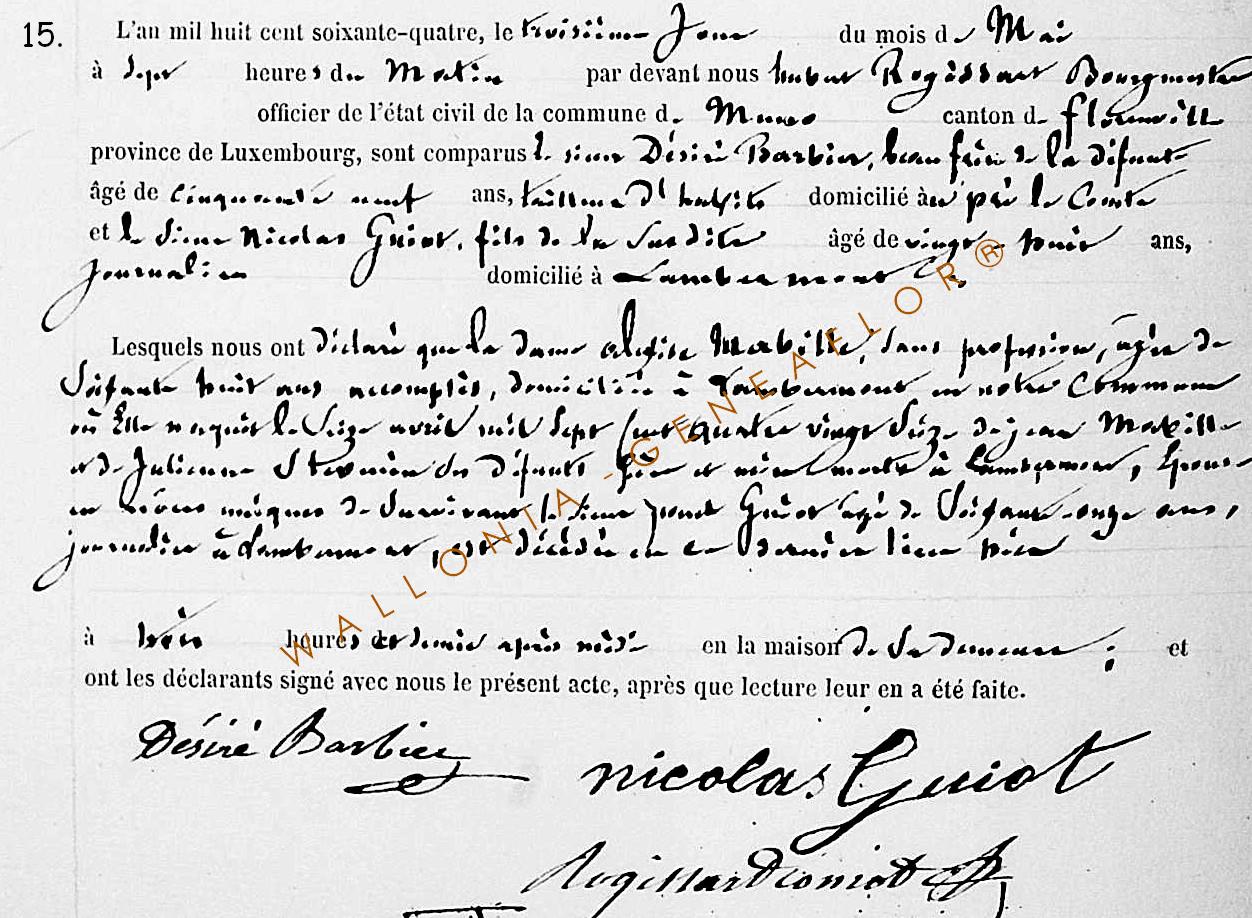 15.
L'an mil huit cent soixante-quatre, le troisième Jour du mois de Mai
à Sept heures du Matin par devant nous hubert Rogissart Bourgmestre
officier de l'état civil de la commune de Muno canton de florenville
province de Luxembourg, sont comparus le sieur Désiré Barbier, beau frère de la défunte
âgé de cinquante neuf ans, tailleur d'habits domicilié à au pré le Comte
et le Sieur Nicolas Guiot, fils de la Susdite âgé de vingt-huit ans,
journalier domicilié à Lambermont
Lesquels nous ont déclaré que la dame Mabille, Sans profession, âgée de
Soixante huit ans accomplis, domiciliée à Lambermont en notre Commune
où Elle naquit le Seize avril mil Sept Cent quatre vingt Seize de jean Mabille
et de Julienne des défunts père et mère morts à Lambermont, Epouse
en noces de Survivant le Sieur Guiot âgé de Soixante-onze ans,
journalier à Lambermont, est décédée en ce dernier lieu hier
à trois heures et demie après midi en la maison de Sa demeure ; et
ont les déclarants signé avec nous le présent acte, après que lecture leur en a été faite.
Désiré Barbier
nicolas Guiot
Rogissart
WALLONIA-GENEAFLOR®